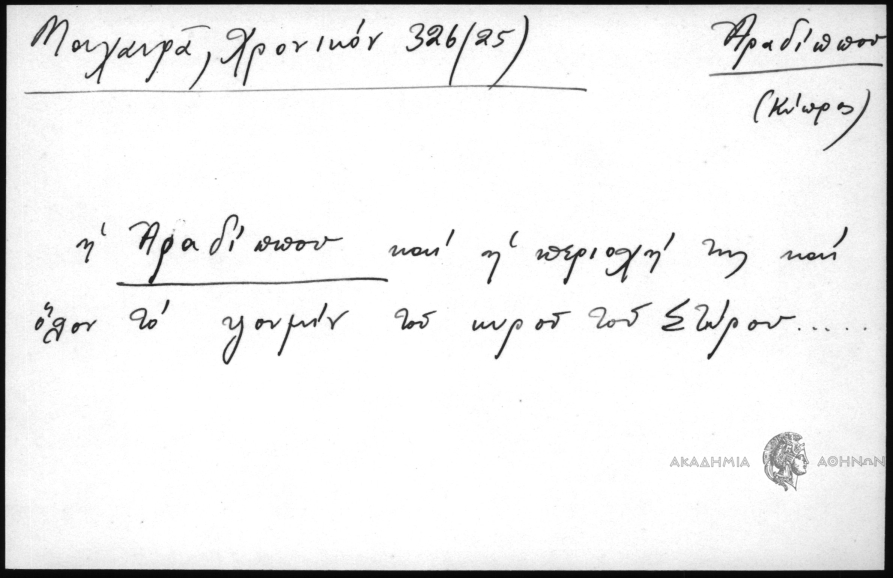 Μαχαιρά, Χρονικόν 326(25)
Ἀραδίππου
(Κύπρος)
ἡ Ἀραδίππου καί ἡ περιοχή της καί
ὅλον τό τοῦ κυροῦ τοῦ Στύρου.....
ΑΚΑΔΗΜΙΑ ΑΘΗΝΩΝ